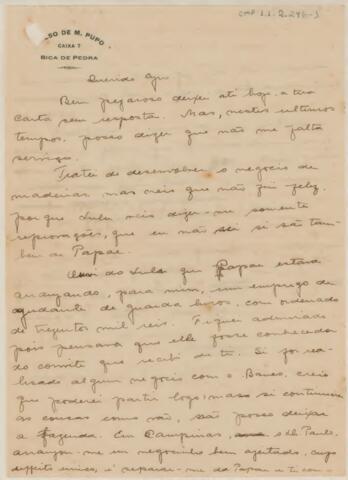 CMP 1.1.2.246-3
SO DE M. PUPO
CAIXA 7
BICA DE PEDRA
Querido
Bem pezaroso deixei até hoje a tua
carta sem resposta. Mas, nestes ultimos
tempos, posso dizer que não me falta
serviço.
Tratei de desenvolver o negocio de
madeiras, mas creis que não fui feliz,
porque Lulu veis dizer-me somente
reprovações, que eu não sei si são tam-
bem de Papae.
do Lulu que Papae estava
arranjando, para mim, um emprego de
ajudante de guarda livros, com ordenado
de trezentos mil reis. Fiquei admirado
pois pensava que elle fosse conhecedor
do convite que recebi de ti. Si for rea-
lisado algum negocio com o Banco, creio
que poderei partir logo; mas si continuarem
as cousas como vão, não posso deixar
a fazenda. Em Campinas, o Sr. Paulo,
arranjou-me um negocinho bem ageitado, cujo
deffeito unico, é separar-me de Papae e ti com-